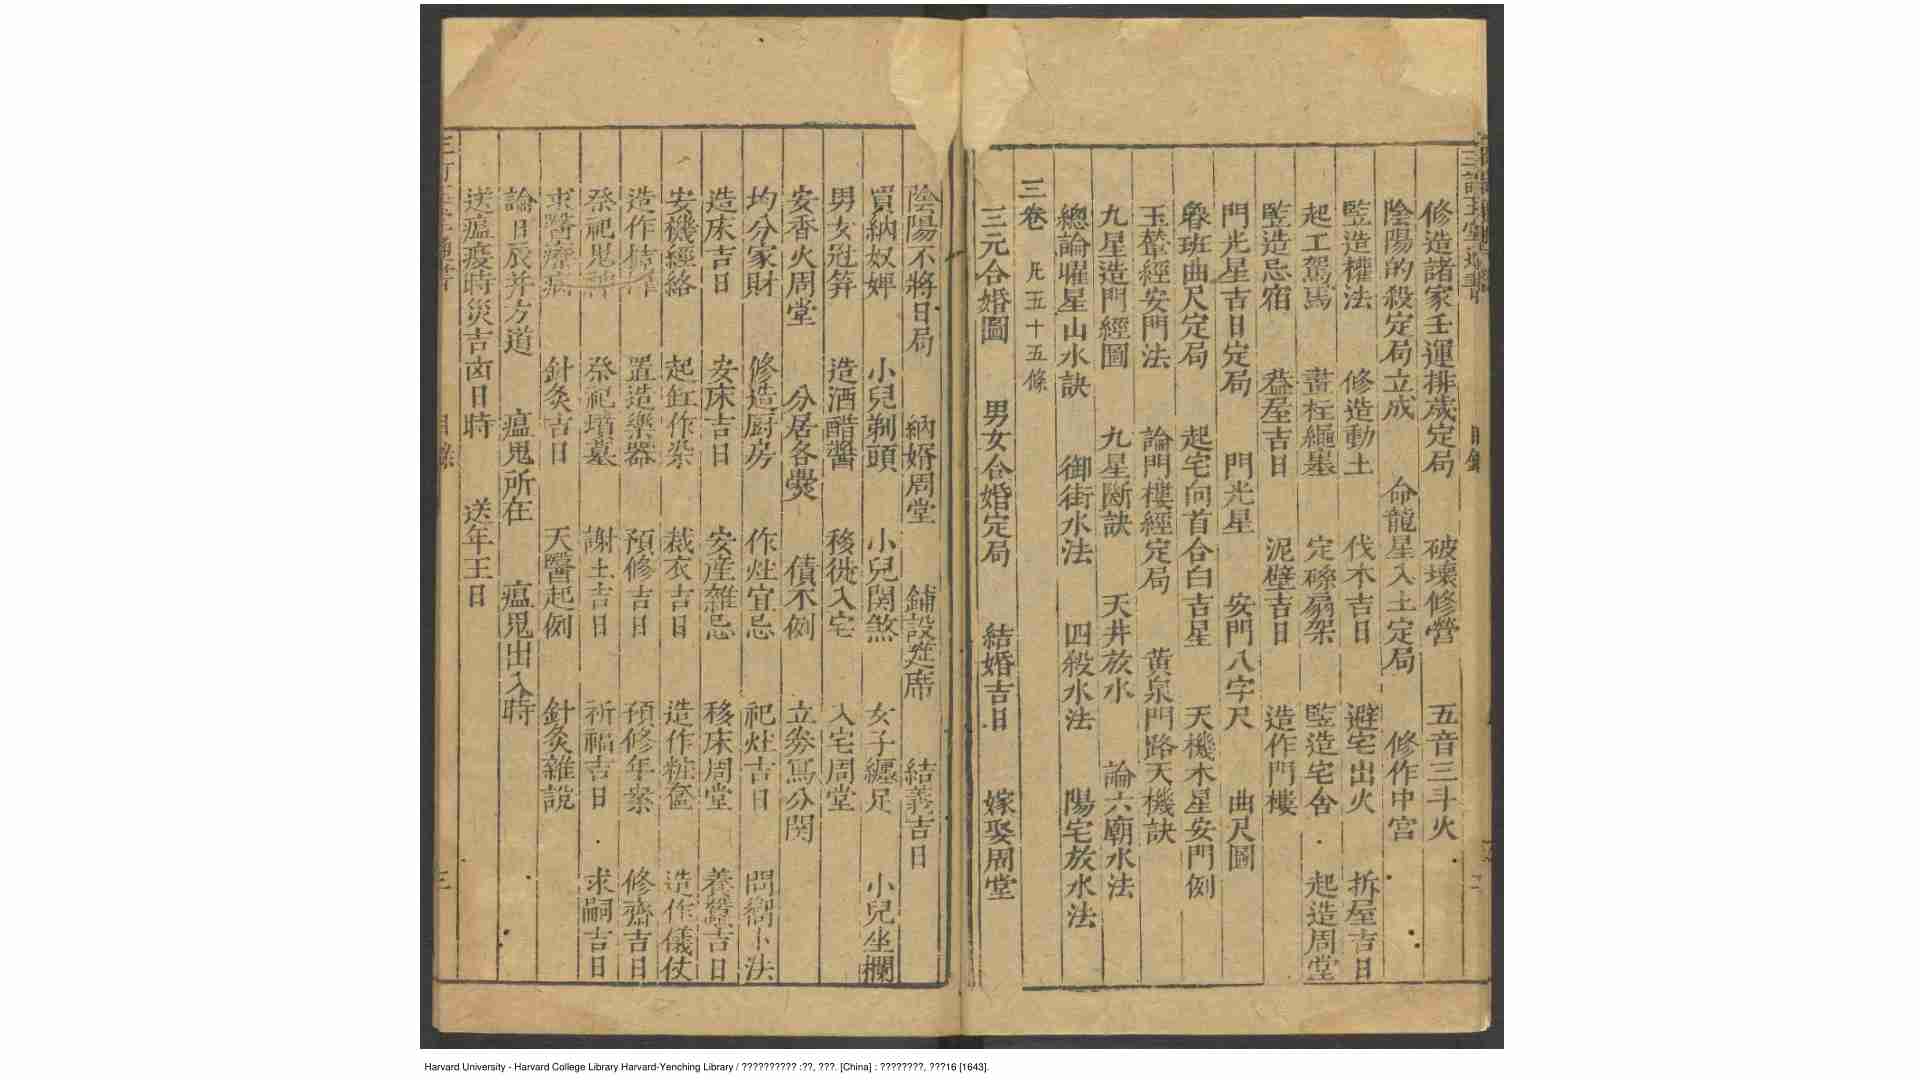 修造諸家壬運排歲定局 破壞修營 五音三斗火
陰陽的殺定局立成 命龍星入土定局 修作中宮
監造權法 修造動土 伐木吉日 避宅出火 拆屋吉日
起工駕馬 畫柱繩墨 定磉扇架 監造宅舍 起造周堂
監造忌宿 葢屋吉日 泥壁吉日 造作門樓
門光星吉日定局 門光星 安門八字尺 曲尺圖
魯班曲尺定局 起宅向首合白吉星 天機木星安門例
玉輦經安門法 論門樓經定局 黃泉門路天機訣
九星造門經圖 九星斷訣 天井放水 論六廟水法
總論曜星山水訣 御街水法 四殺水法 陽宅放水法
三卷 凡五十五條
三元合婚圖 男女合婚定局 結婚吉日 嫁娶周堂
陰陽不將日局 納婿周堂 鋪設筵席 結義吉日
買納奴婢 小兒剃頭 小兒関煞 女子纏足 小兒坐欄
男女冠笄 造酒醋醬 移徙入宅 入宅周堂
安香火周堂 分居各爨 債不例 立券寫分関
均分家財 修造厨房 作灶宜忌 祀灶吉日 問嚮卜法
造床吉日 安床吉日 安産雜忌 移床周堂 養蠶吉日
安機經絡 起缸作染 裁衣吉日 造作粧奩 造作儀仗
造作 置造樂器 預修吉日 預修年案 修齋吉日
祭祀鬼神 祭祀墳墓 謝土吉日 祈福吉日 求嗣吉日
求醫療病 針灸吉日 天醫起例 針灸雜說
論日辰并方道 瘟鬼所在 瘟鬼出入時
送瘟疫時災吉凶日時 送年王日
三
Harvard University - Harvard College Library Harvard-Yenching Library / ?????????? :??, ???. [China] : ????????, ???16 [1643].